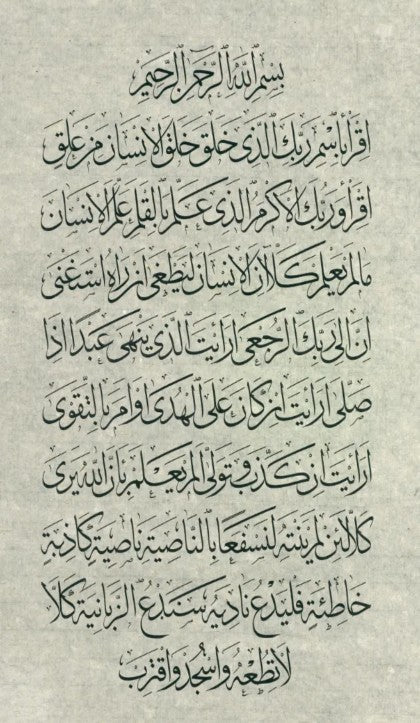 بسم الله الرحمن الرحيم
اقرأ باسم ربك الذي خلق خلق الانسان من علق
اقرأ وربك الاكرم الذي علم بالقلم علم الانسان
مالم يعلم كلا ان الانسان ليطغى ان راه استغنى
ان الى ربك الرجعى ارايت الذي ينهى عبدا اذا
صلى ارايت ان كان على الهدى او امر بالتقوى
ارايت ان كذب وتولى الم يعلم بان الله يرى
كلا لئن لم ينته لنسفعا بالناصية ناصية كاذبة
خاطئة فليدع ناديه سندع الزبانية كلا
لا تطعه واسجد واقترب